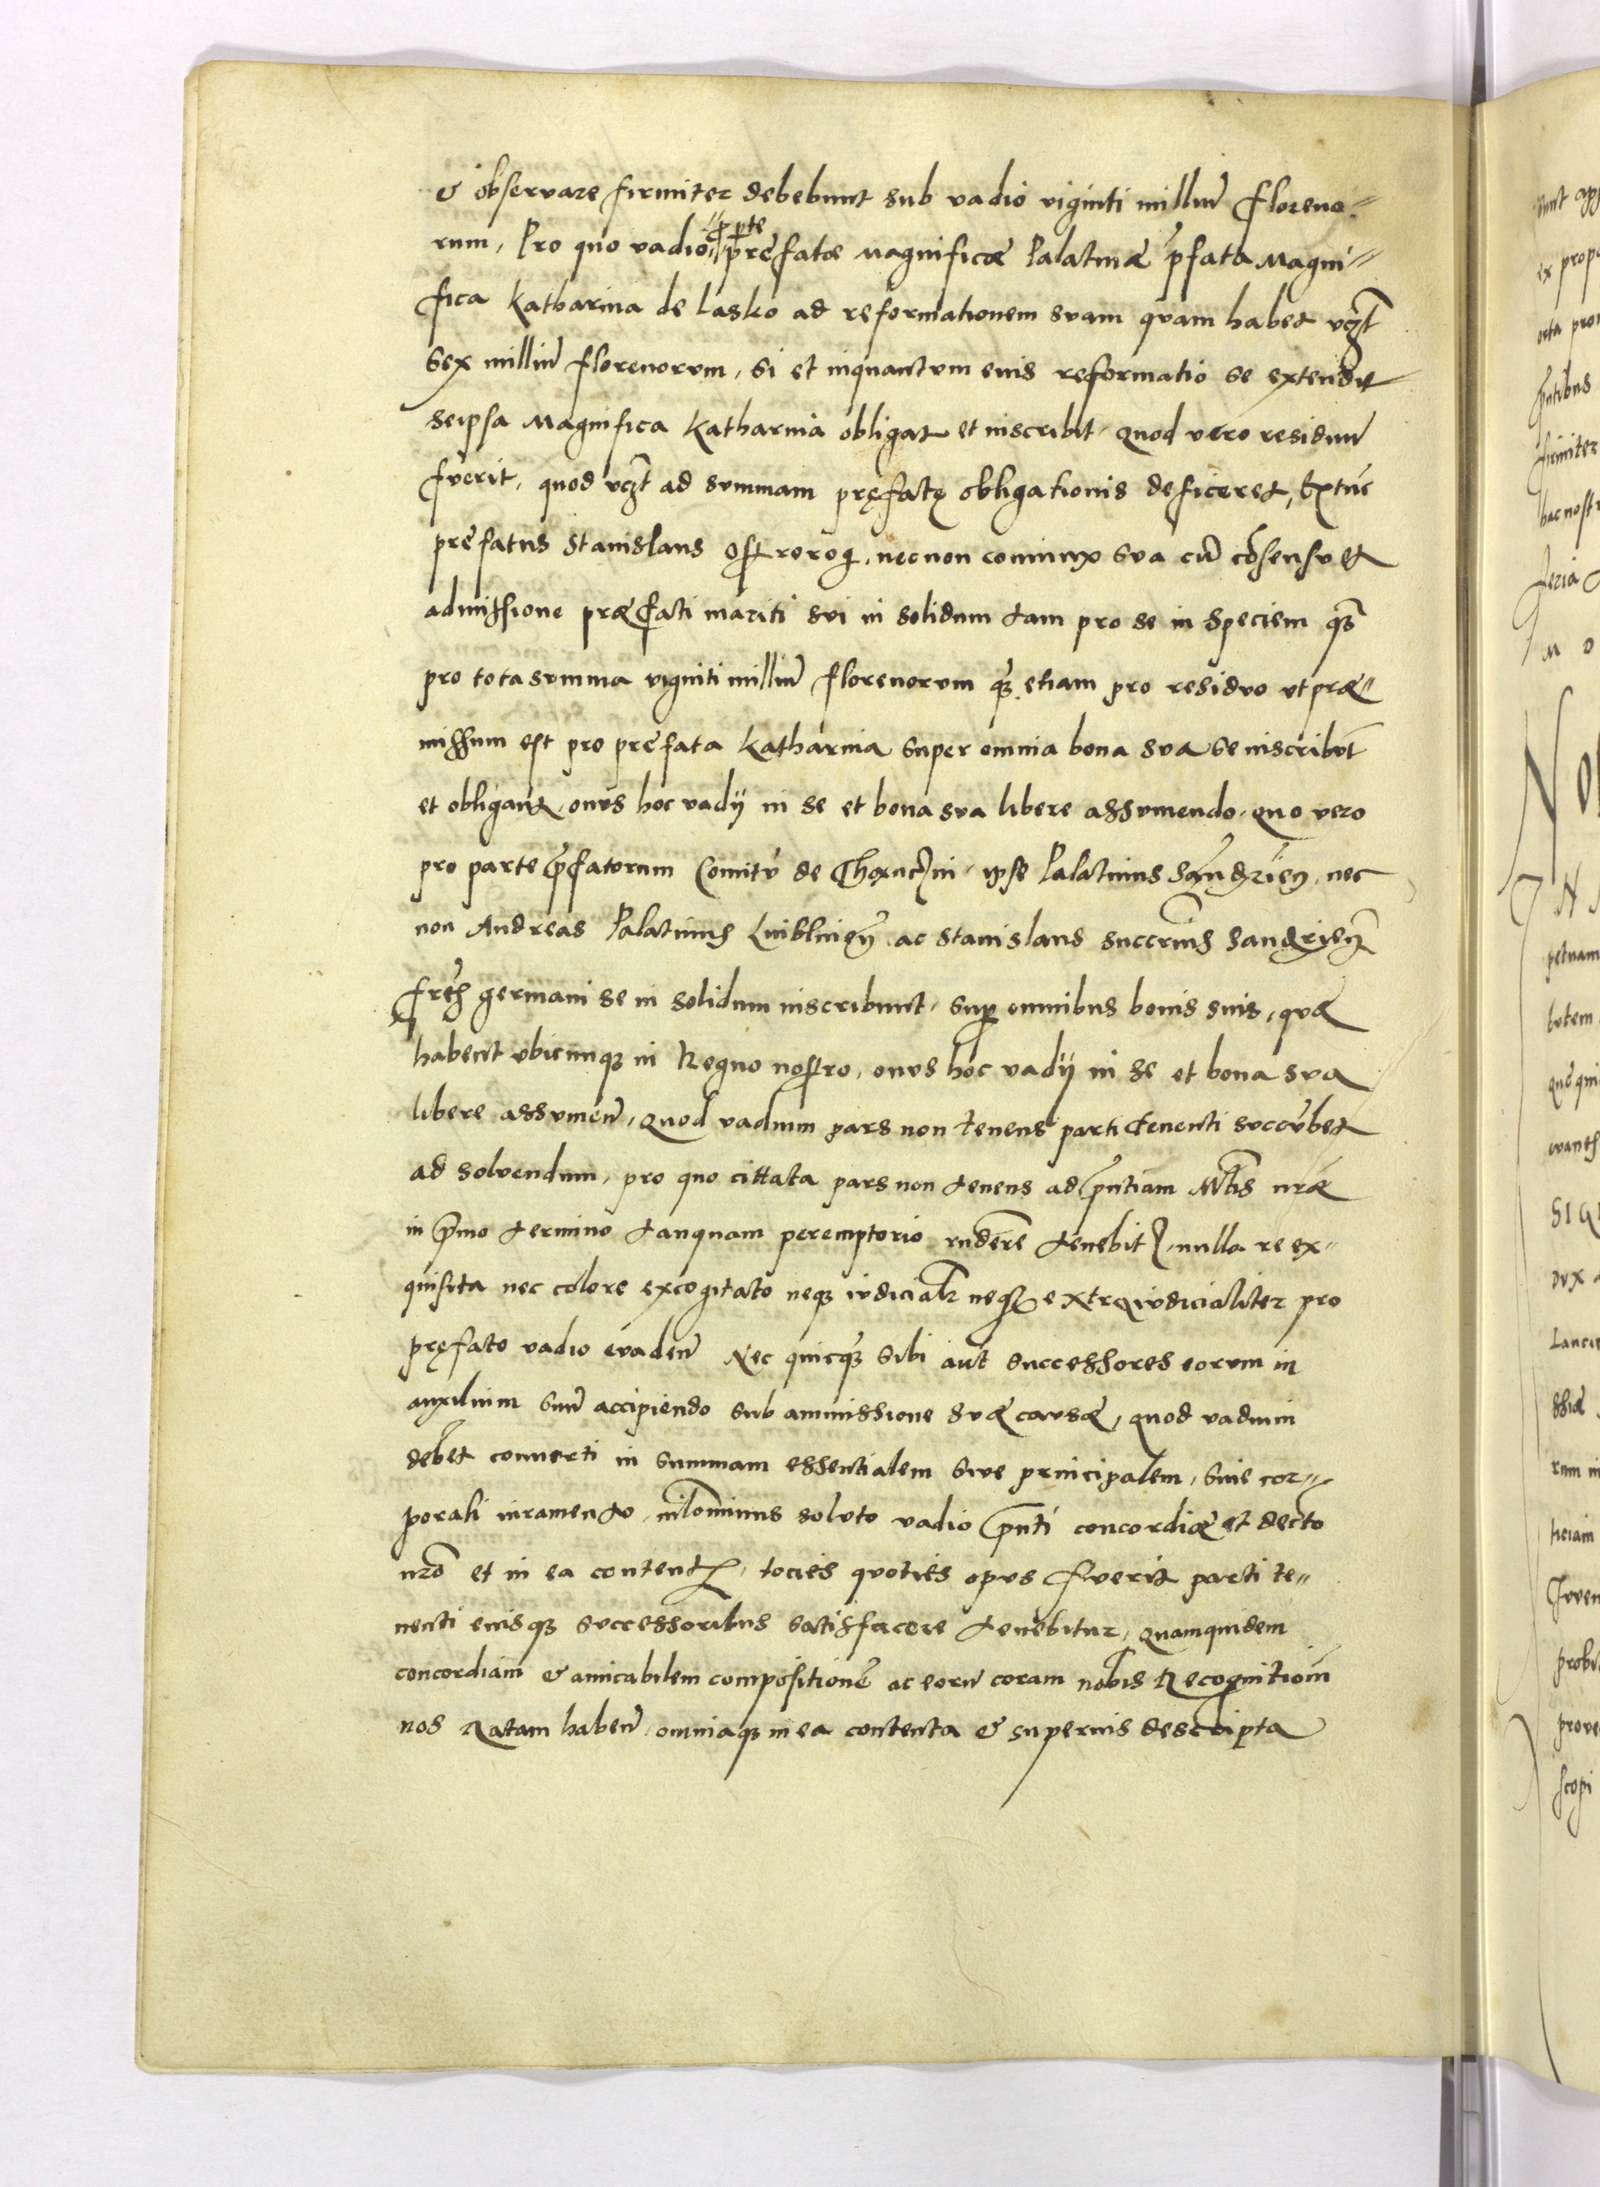 & observare firmiter debebunt sub vadio viginti milliū floreno=
rum, Pro quo vadio, ꝓ pte præfatæ Magnificæ Palatinæ p̄fata Magni=
fica Katharina de Lasko ad reformationem suam quam habet vꝫt
sex milliū florenorum, si et inquantum eius reformatio se extendit
seipsa Magnifica Katharina obligat et inscribit, quod vero residuū
fuerit, quod vꝫt ad summam pręfatę obligationis deficeret, Extūc
præfatus Stanislaus Ostrorog, necnon coniunx sua cū cōsensu et
admissione præfati mariti sui in solidum tam pro se in speciem qꝫ
pro tota summa viginti milliū florenorum qꝫ etiam pro residuo ut præ=
missum est pro præfata Katharina super omnia bona sua se inscribūt
et obligant, onus hoc vadij in se et bona sua libere assumendo, quo vero
pro parte p̄fatorum Comitū de ipse Palatinus Sandrien, nec
non Andreas Palatinus Lublinen ac Stanislaus Sandrien
frēs germani se in solidum inscribunt, sup omnibus bonis suis, quæ
habent ubicunqꝫ in Regno nostro, onus hoc vadij in se et bona sua
libere assumen̄, Quod vadium pars non tenens parti tenenti succūbet
ad solvendum, pro quo cittata pars non tenens ad p̄ntiam Mtis nr̄æ
in p̄mo termino tanquam peremptorio rndēre tenebitꝛ, nulla re ex=
quisita nec colore excogitato neqꝫ iudicialr neqꝫ extraiudicialiter pro
pręfato vadio evaden̄ Nec quicqꝫ sibi aut successores eorum in
auxilium suū accipiendo sub ammissione suæ causæ, quod vadium
debet converti in summam essentialem sive principalem, sine cor=
porali iuramento, nilominus soluto vadio p̄nti concordiæ et decto
nro et in ea contentꝭ, tocies quoties opus fuerit parti te=
nenti eiusqꝫ successoribus satisfacere tenebitur, Quamquidem
concordiam & amicabilem compositionē ac eorū coram nobis Recognitiom̄
nos Ratam haben̄ omniaqꝫ in ea contenta & superius descripta